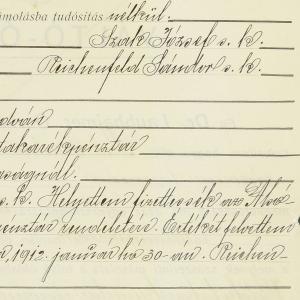 ámolásba tudósítás nélkül.
Szak József s. k.
Reichenfeld Sándor s. k.
dván
takarékpénztár
aságnál.
s. k. Helyettem fizettessék az Alsó
énztár rendeletére. Értékét felvettem
, 1912. január hó 30-án. Reichen-